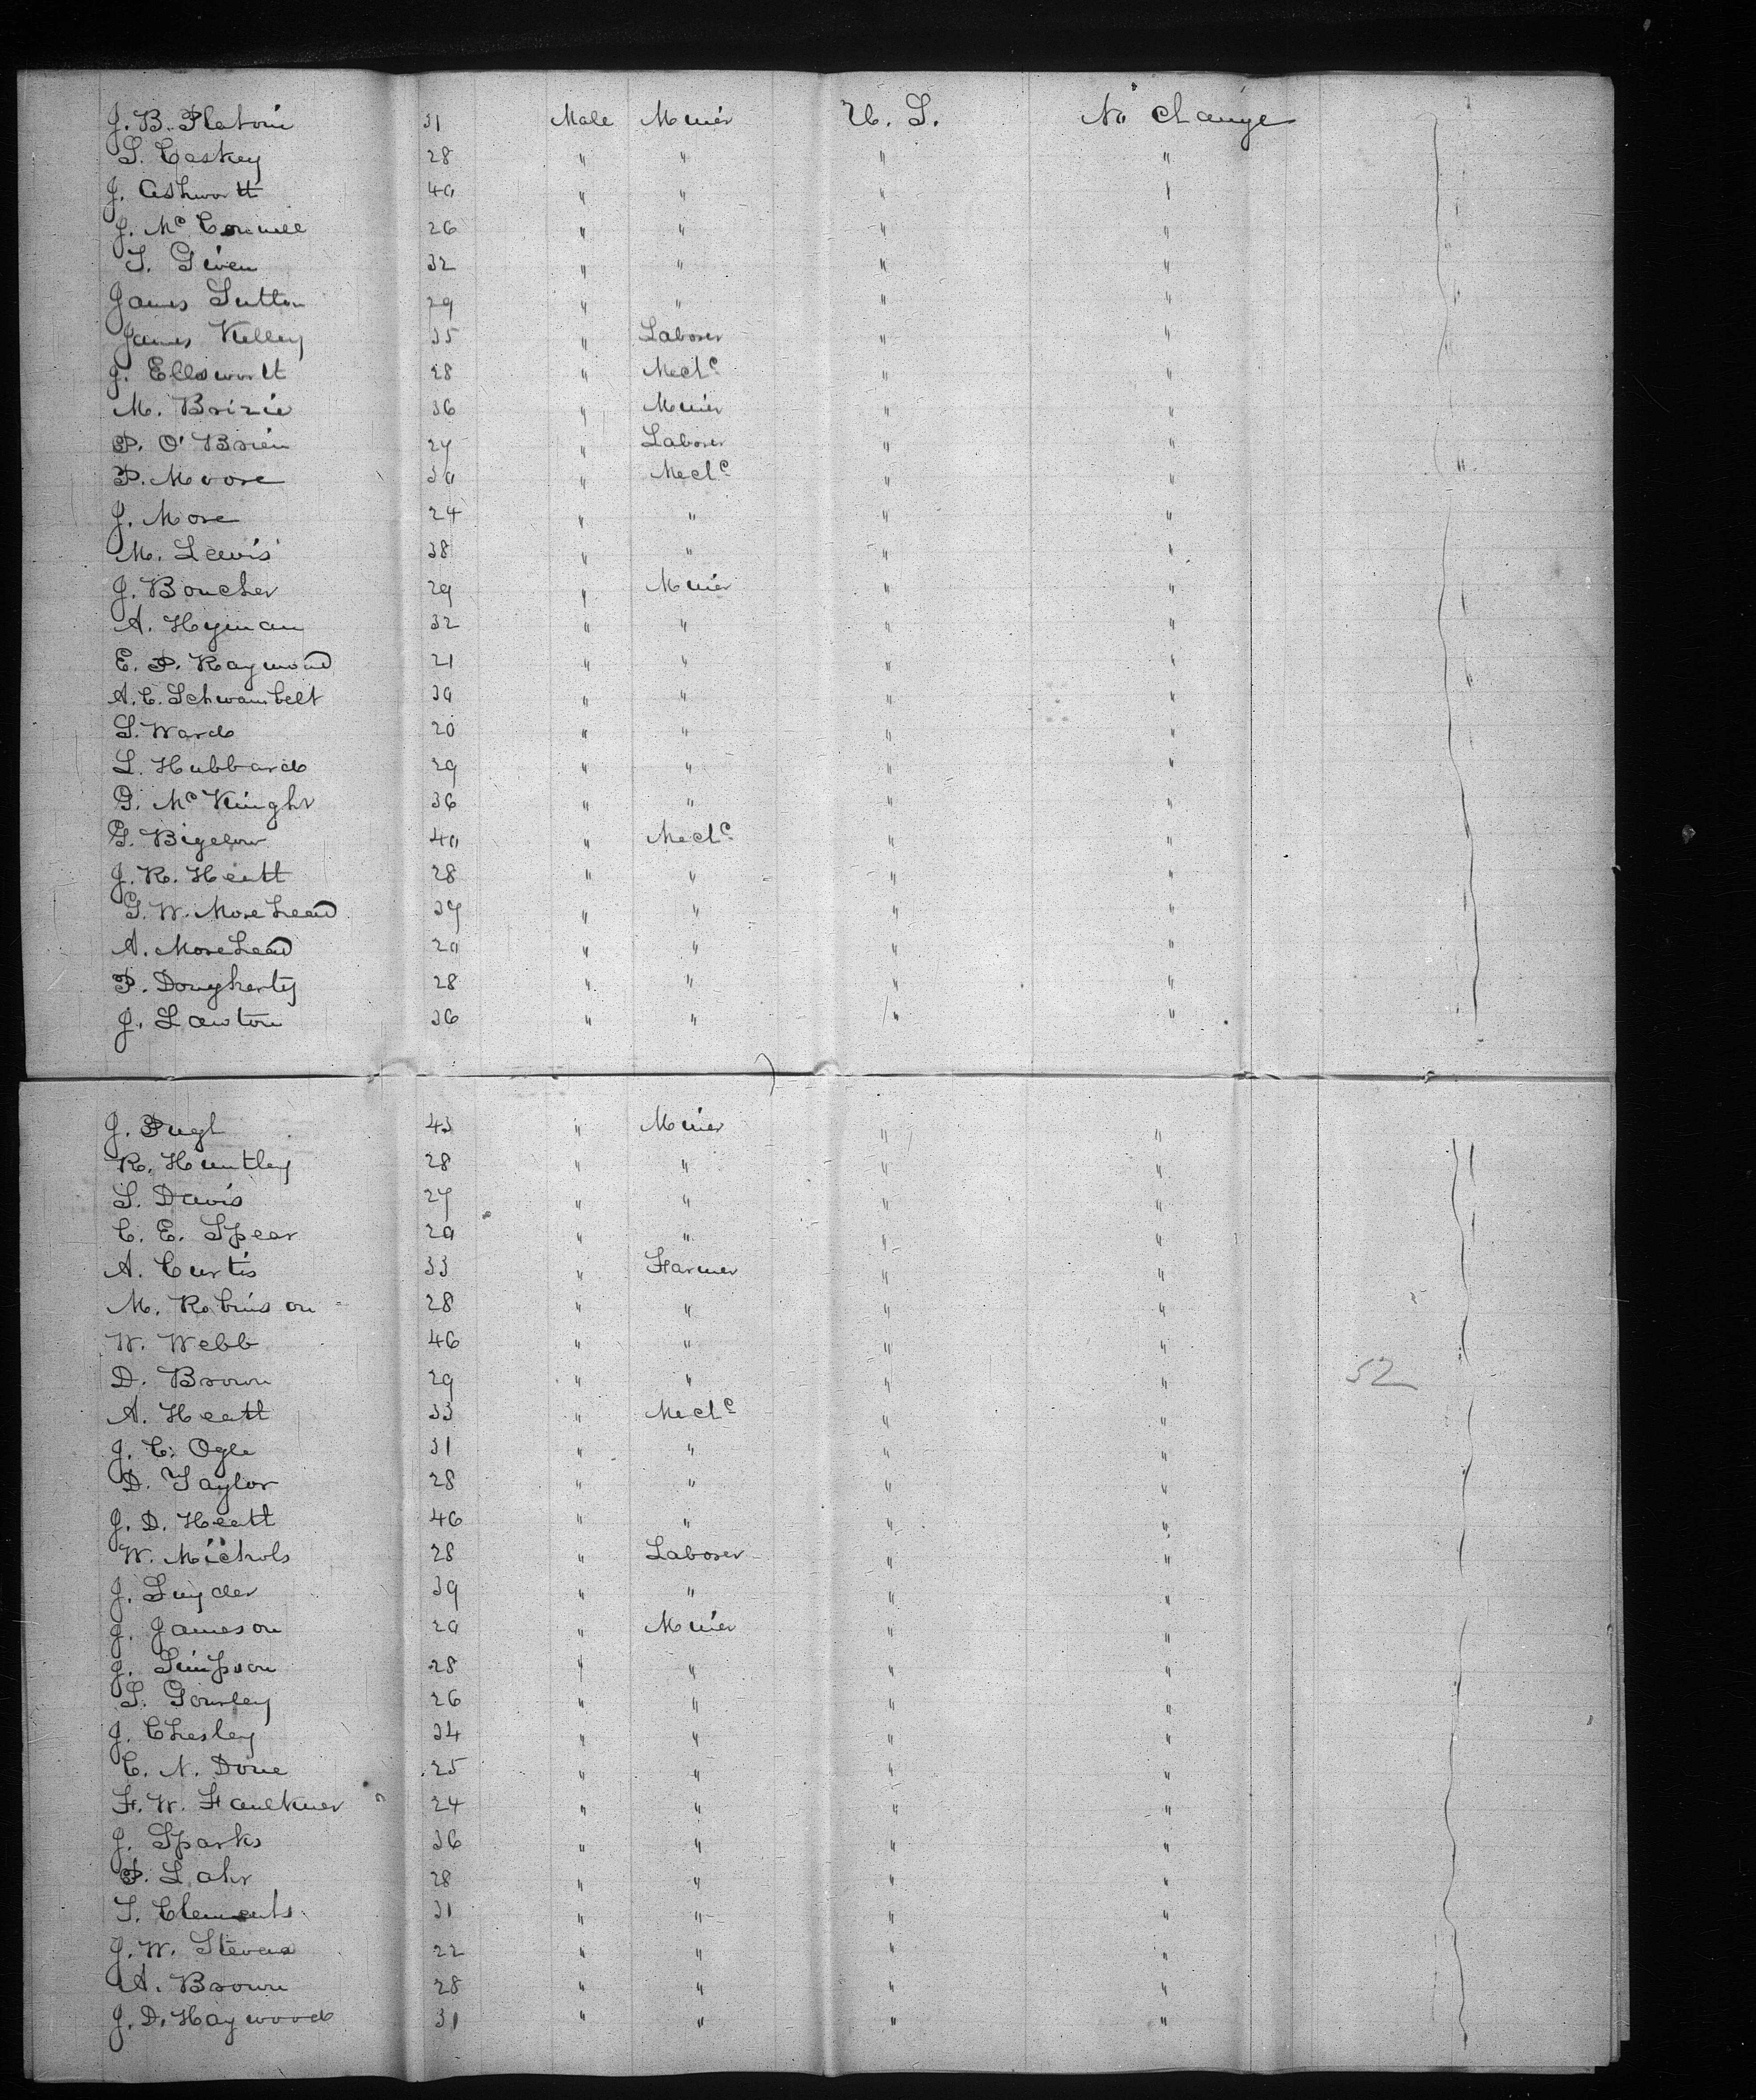 J. B. Platom 31 Male Miner U. S. No Change
S. Caskey 28 " " " "
J. Ashworth 40 " " " "
J. Mc Connell 26 " " " "
T. Given 32 " " " "
James Sutton 29 " " " "
James Kelley 35 " Laborer " "
J. Ellsworth 28 " Mechc " "
M. Brizie 36 " Miner " "
P. O'Brien 27 " Laborer " "
P. Moore 30 " Mechc " "
J. More 24 " " " "
M. Lewis 38 " " " "
J. Boucher 29 " Miner " "
A. Hyman 32 " " " "
E. P. Raymond 21 " " " "
A. C. Schwambelt 30 " " " "
S. Ward 20 " " " "
L. Hubbard 29 " " " "
G. Mc Knight 36 " " " "
G. Bigelow 40 " Mechc " "
J. R. Heatt 28 " " " "
G. W. Morehead 37 " " " "
A. Morehead 20 " " " "
P. Dougherty 28 " " " "
J. Lawton 36 " " " "
J. Pugh 43 " Miner " "
R. Huntley 28 " " " "
S. Davis 27 " " " "
C. E. Spear 20 " " " "
A. Curtis 33 " Farmer " "
M. Robinson 28 " " " "
W. Webb 46 " " " "
D. Brown 29 " " " " 52
A. Heatt 33 " Mechc " "
J. C. Ogle 31 " " " "
D. Taylor 28 " " " "
J. D. Heatt 46 " " " "
W. Michols 28 " Laborer " "
J. Snyder 39 " " " "
J. Jameson 20 " Miner " "
J. Simpson 28 " " " "
S. Gourley 26 " " " "
J. Chesley 34 " " " "
C. N. Done 25 " " " "
F. W. Faulkner 24 " " " "
J. Sparks 36 " " " "
P. Lahr 28 " " " "
T. Clements 31 " " " "
J. W. Stevens 22 " " " "
A. Brown 28 " " " "
J. D. Haywood 31 " " " "